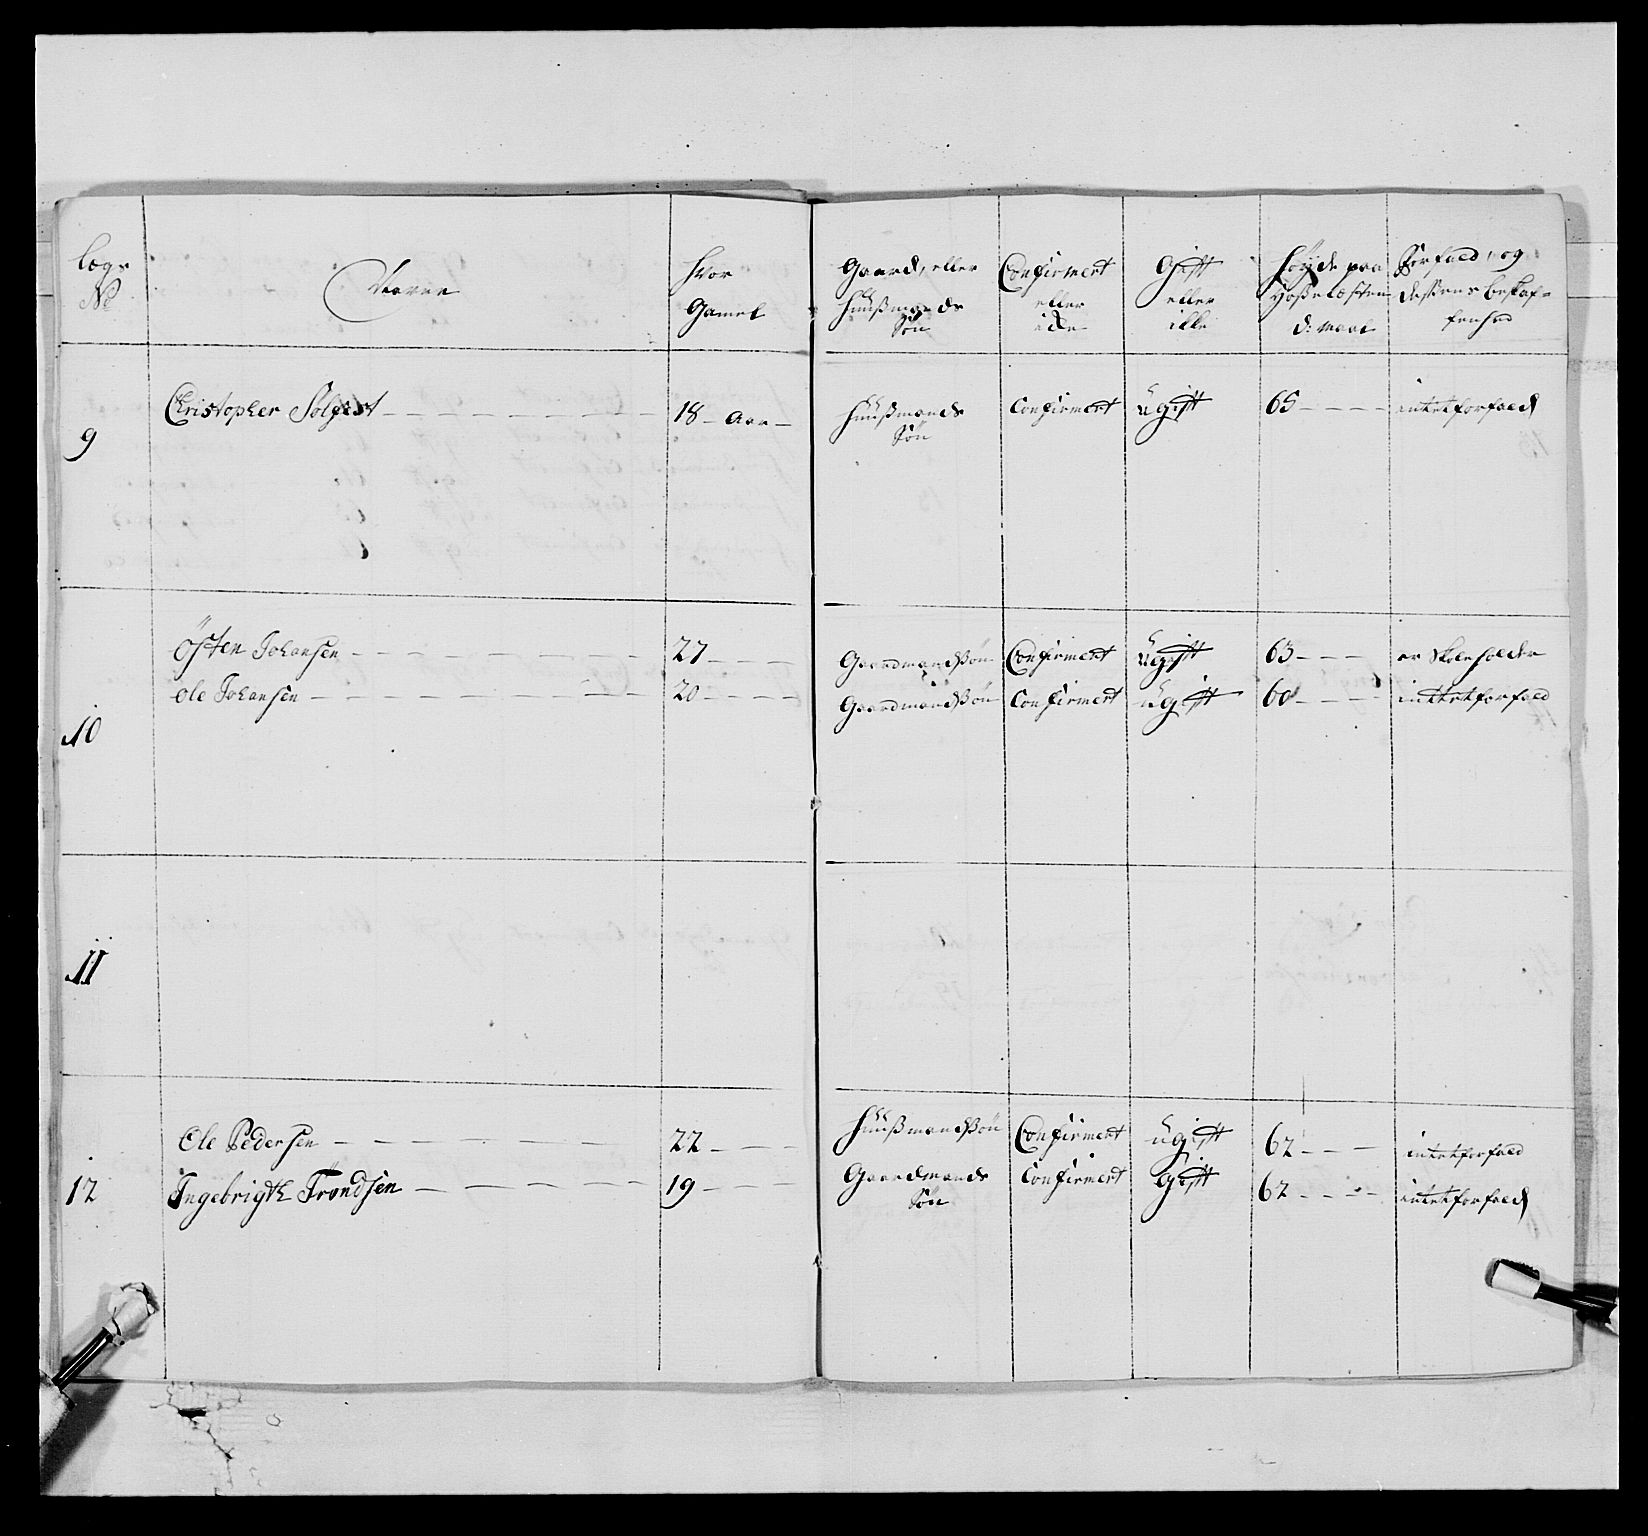 Legs No
Navne
Hvor Gamel
Gaard, eller Huusmands Søn
Confirmert eller icke
Gift eller ikke
Høyde paa Hosselæsten d: maal
Forfald, og dessens beskaffenhed
9 Christopher Solfest 18 Aar Huusmands Søn Confirmert Ugift 65 intet forfald
10
Østen Johansen 27 Gaardmandssøn Confirmert Ugift 63 er Skoleholder
Ole Johansen 20 Gaardmandssøn Confirmert Ugift 60 intet forfald
11
12
Ole Pedersen 22 Huusmandssøn Confirmert ugift 62 intet forfald
Ingebrigth Trondsen 19 Gaardmands Søn Confirmert Gift 62 intet forfald